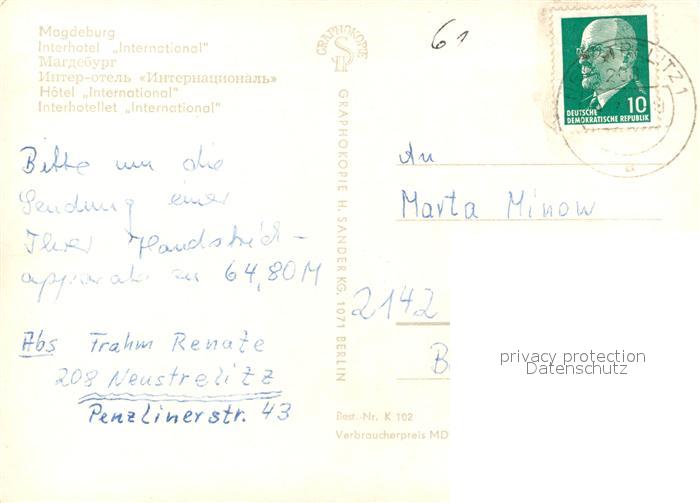 Magdeburg
Interhotel „International"
Магдебург
Интер-отель «Интернациональ»
Hôtel „International"
Interhotellet „International"
GRAPHOKOPIE
GRAPHOKOPIE H. SANDER KG, 1071 BERLIN
61
10
DEUTSCHE
DEMOKRATISCHE REPUBLIK
Bitte um die
Sendung einer
Ihrer Handstrick-
apparate zu 64,80 M
Abs Trahm Renate
208 Neustrelitz
Penzlinerstr. 43
An
Marta Minow
2142
B
privacy protection
Datenschutz
Best.-Nr. K 102
Verbraucherpreis MD